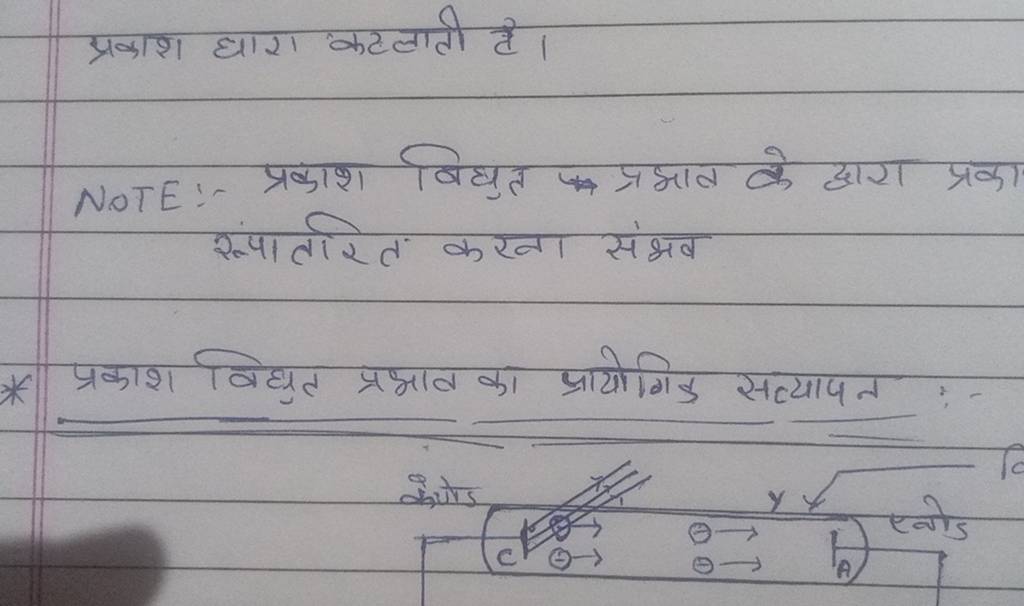 प्रकाश धारा कहलाती है।
NOTE:- प्रकाश विद्युत प्रभाव के द्वारा प्रका
रूपांतरित करना संभव
* प्रकाश विद्युत प्रभाव का प्रायोगिक सत्यापन :-
कैथोड
एनोड
C
A